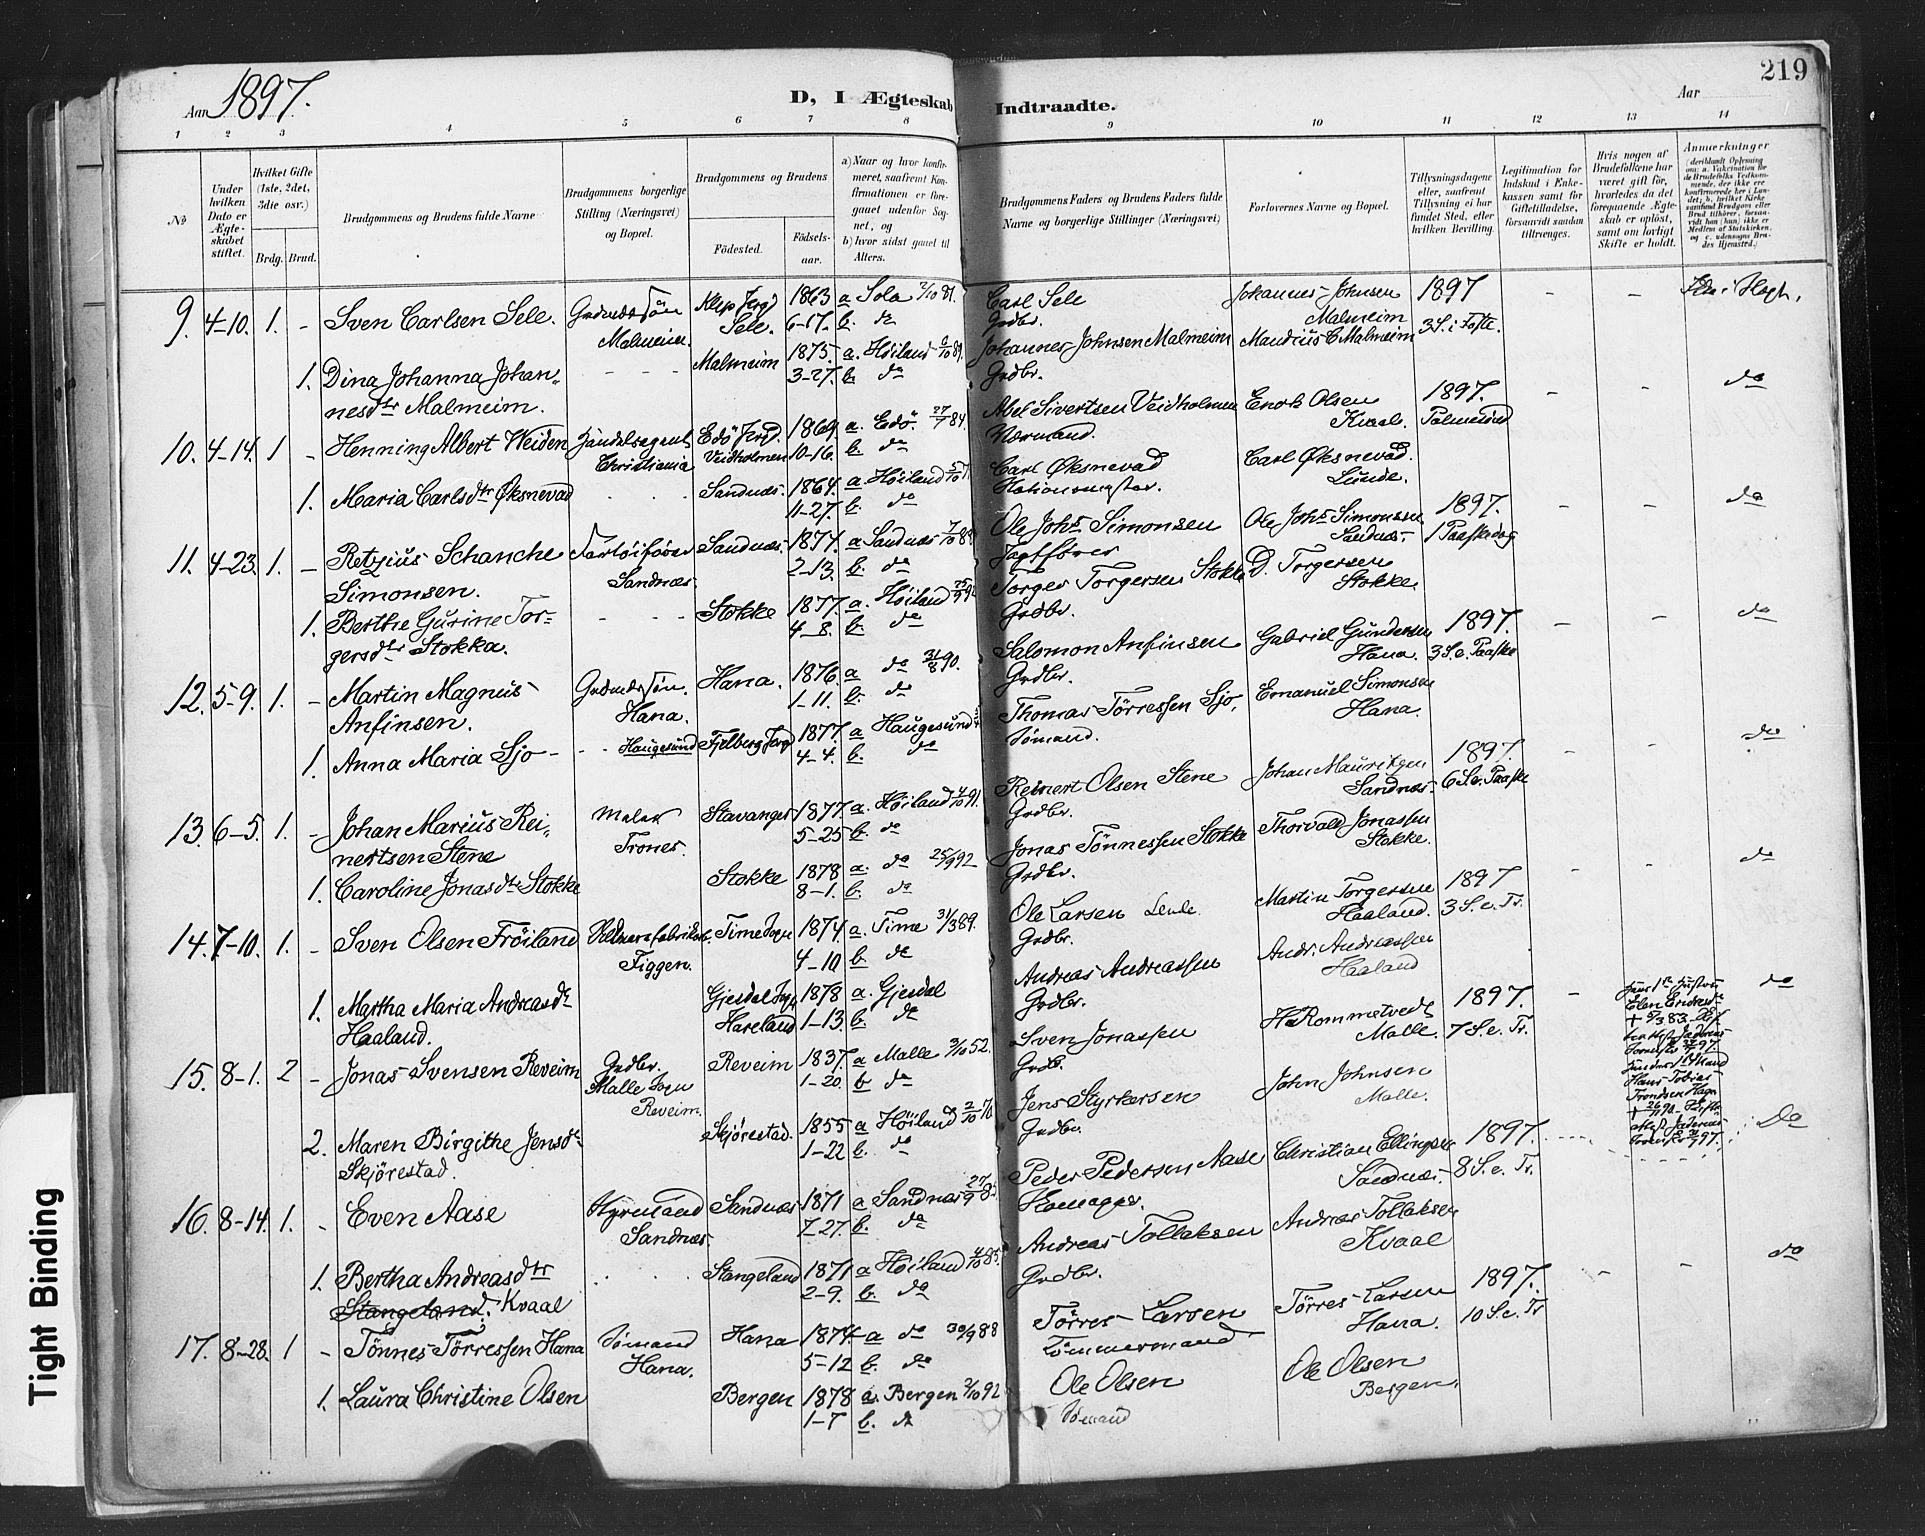 Aar 1897.
D, I Ægteskab Indtraadte.
Aar
219
1 2 3 4 5 6 7 8 9 10 11 12 13 14
No
Under hvilken Dato er Ægteskabet stiftet.
Hvilket Gifte (1ste, 2det, 3die osv.)
Brdg. Brud.
Brudgommens og Brudens fulde Navne
Brudgommens borgerlige Stilling (Næringsvei) og Bopæl.
Brudgommens og Brudens
Fødested. Fødselsaar.
a) Naar og hvor konfirmeret, saafremt Konfirmationen er foregaaet udenfor Sognet, og
b) hvor sidst gaaet til Alters.
Brudgommens Faders og Brudens Faders fulde Navne og borgerlige Stillinger (Næringsvei)
Forlovernes Navne og Bopæl.
Tillysningsdagene eller, saafremt Tillysning ei har fundet Sted, efter hvilken Bevilling.
Legitimation for Indskud i Enkekassen samt for Giftetilladelse, forsaavidt saadan tiltrænges.
Hvis nogen af Brudefolkene har været gift før, hvorledes da det foregaaende Ægteskab er opløst, samt om lovligt Skifte er holdt.
Anmerkninger
9. 4-10. 1. - Sven Carlsen Sele. Grdmdssøn Malmeim. Klep Prgj Sele. 1863 6-17. a Sola 2/10 81. b. do Carl Sele Grdbr. Johannes Johnsen Malmeim 1897 3 S. i Faste. - -
1. Dina Johanna Johannesdtr Malmeim. - - - Malmeim 1875. 3-27. a. Høiland 6/10 89. b. do Johannes Johnsen Malmeim Grdbr. Maudius C Malmeim
10. 4-14. 1 - Henning Albert Weiden Handelsagent Christiania Edö Prgj. Veidholmen 1869. 10-16. a. Edö 27/7 84. b. do Abel Sivertsen Veidholmen Værmand. Enok Olsen Kvaal. 1897. Palmesönd - - do
1. Maria Carlsdtr Øksnevad - - Sandnæs. 1864. 11-27. a Høiland b. do Carl Øksnevad Stationsmester. Carl Øksnevad. Lunde.
11. 4-23. 1. - Retzius Schanche Simonsen. Fartöiförer Sandnæs. Sandnæs. 1877. 2-13. a Sandnæs b. do Ole Johs Simonsen Jagtförer Ole Johs Simonsen Sandnæs- 1897. 1 Paaskedag - - do
1. Berthe Gurine Torgersdtr Stokka. - - - Stokke 1877. 4-8. a. Høiland b. do Torger Torgersen Stokke Grdbr. D. Torgersen Stokke.
12. 5-9. 1. - Martin Magnus Anfinsen. Grdmdssøn. Hana. Hana. 1876. 1-11. a do 31/8 90. b. do Salomon Anfinsen Grdbr. Gabriel Gundersen Hana. 1897. 3 S. e. Paaske - - do
1. Anna Maria Sjo - - - Haugesund Fjelberg Prgj 1877. 4-4. a Haugesund b. do Thomas Törressen Sjo, Sømand. Emanuel Simonsen Hana.
13. 6-5. 1. - Johan Marius Reinertsen Stene Maler Trones. Stavanger 1877. 5-25 a. Høiland 4/10 91. b. do Reinert Olsen Stene Grdbr. Johan Mauritzen Sandnæs- 1897. 6 S. e. Paaske - - do
1. Caroline Jonasdtr Stokke Stokke 1878 8-1. a. do 25/9 92 b. do Jonas Tönnessen Stokke Grdbr. Thorvald Jonassen Stokke.
14. 7-10. 1. - Sven Olsen Fröiland Uldvarefabrikarb. Figgen. Time Sogn 1874. 4-10 a. Time 31/3 89. b. do Ole Larsen Lende. Grdbr. Martin Torgersen Haaland. 1897 3 S. e. Tr. - - do
1. Martha Maria Andreasdtr Haaland. Gjesdal Sogn Hareland 1878 1-13. a. Gjesdal b. do Andreas Andreassen Grdbr. Andr. Andreassen Haaland
15. 8-1. 2 - Jonas Svensen Reveim Grdbr. Malle Sogn Reveim. Reveim 1837. 1-20. a Malle 3/10 52. b do Sven Jonassen Grdb. H Rommetvedt Malle. 1897. 7 S. e. Tr. - do
2. Maren Birgithe Jensdtr Skjørestad. Skjørestad. 1855 1-22 a Höiland 2/10 70 b. do Jens Styrkersen Grdbr. John Johnsen Malle.
16. 8-14. 1. - Even Aase Styrmand Sandnæs. Sandnæs 1871 7-27. a Sandnæs b. do Peder Pedersen Aase Skomager. Christian Ellingsen Sandnæs- 1897. 8 S. e. Tr. Do
1. Bertha Andreasdtr Stangeland. Kvaal Stangeland 1871 2-9. a Höiland 4/10 85. b. do Andreas Tollaksen Grdbr. Andreas Tollaksen Kvaal
17. 8-28. 1 - Tönnes Törressen Hana Sømand Hana. Hana 1874. 5-12 a do 30/9 88 b. do Törres Larsen Tømmermand Törres Larsen Hana. 1897. 10 S. e. Tr - - do
1. Laura Christine Olsen Bergen 1878 1-7 a. Bergen 2/10 92 b. do Ole Olsen Sømand Ole Olsen Bergen.
Tight Binding